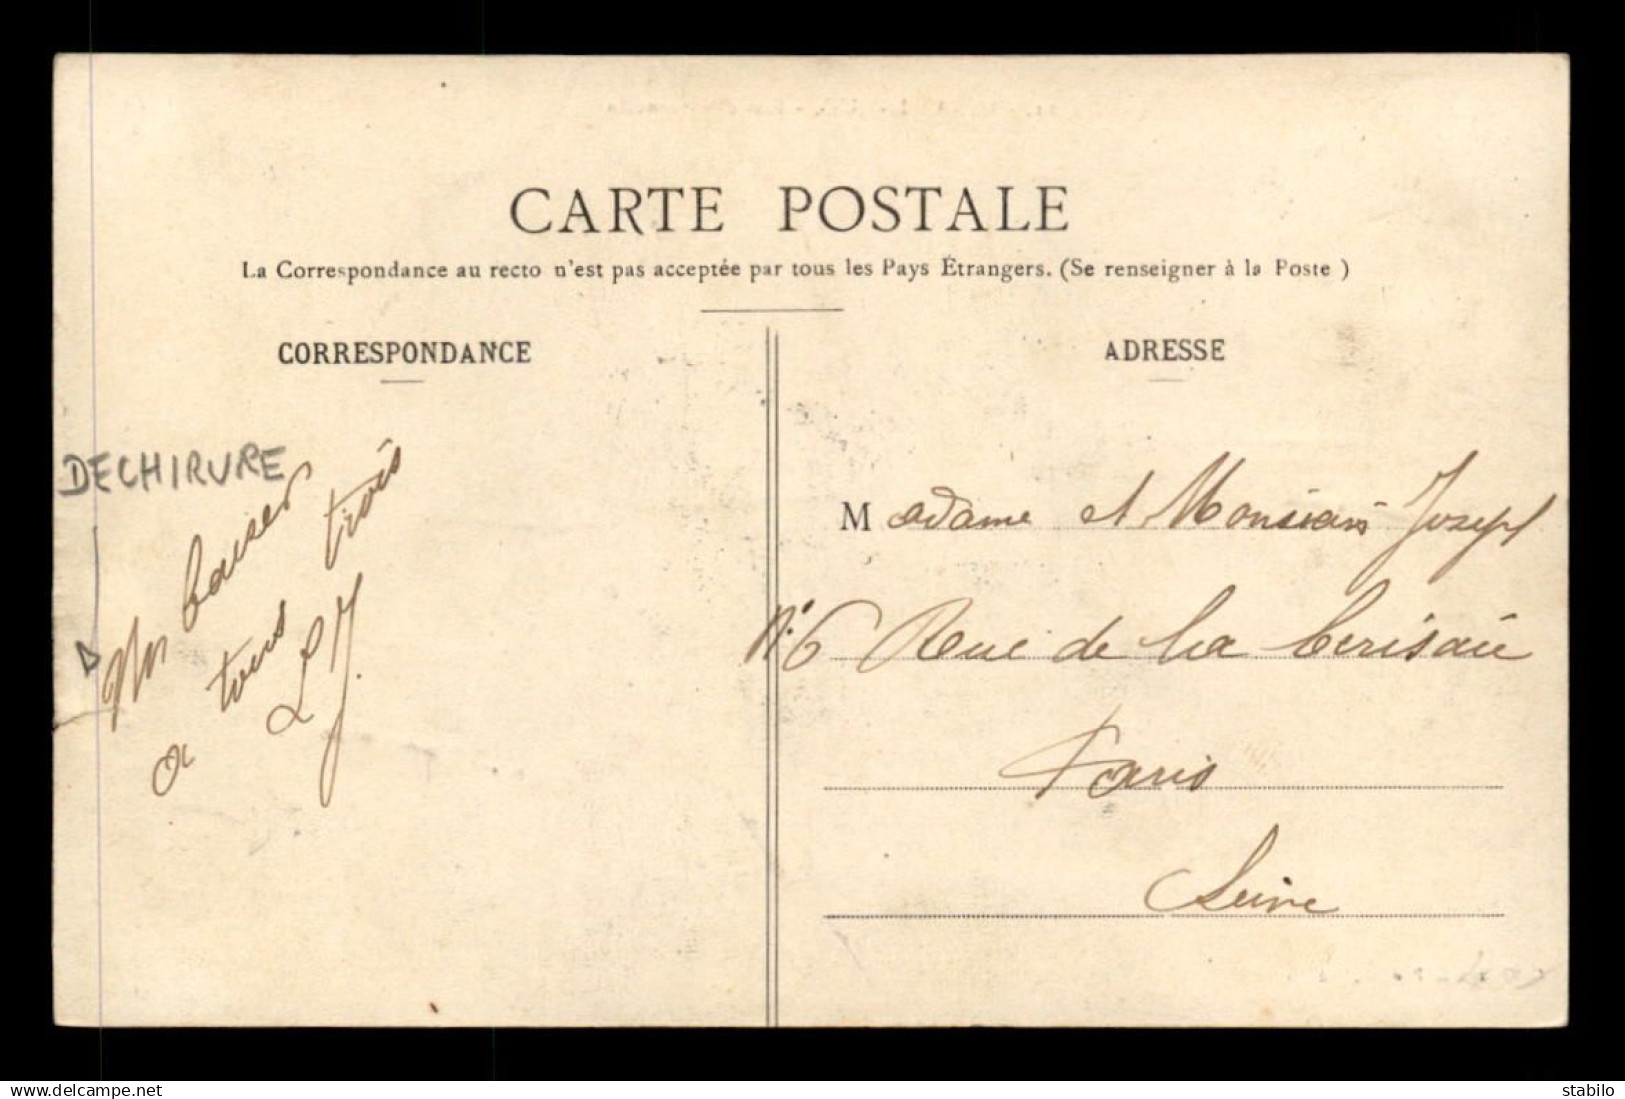 CARTE POSTALE
La Correspondance au recto n'est pas acceptée par tous les Pays Étrangers. (Se renseigner à la Poste)
CORRESPONDANCE
DECHIRURE
baiser
a tous trois
LJ.
ADRESSE
Madame et Joseph
N°6 Rue de la Cerisaie
Paris
Seine
www.delcampe.net
stabilo